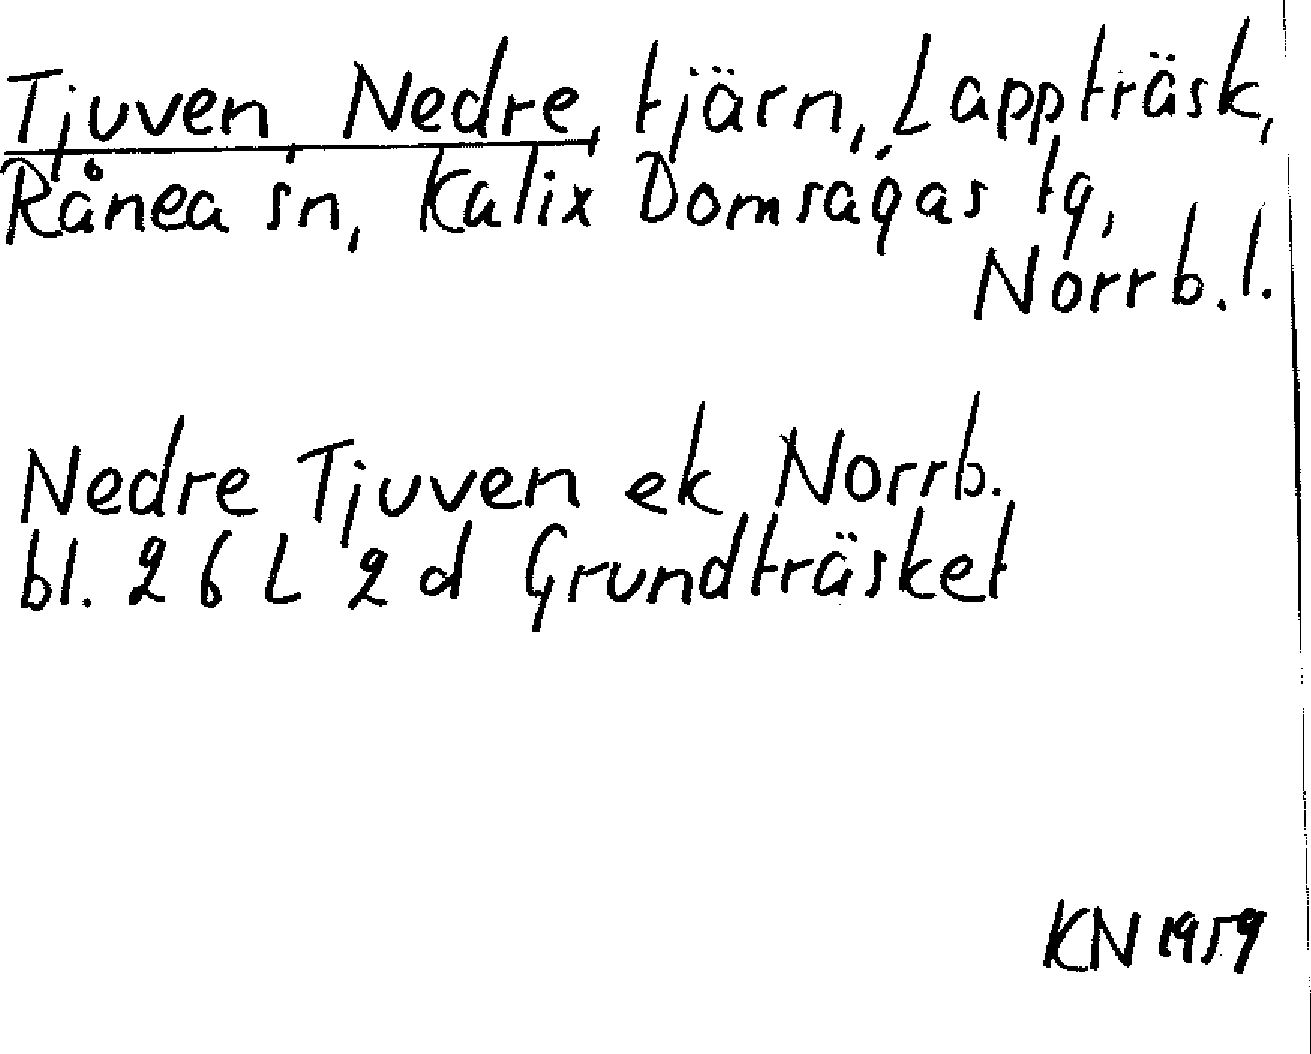 Tjuven, Nedre, tjärn, Lappträsk,
Råneå sn, Kalix Domsagas tg,
Norrb. l.
Nedre Tjuven ek Norrb.
bl. 26 L 2 d Grundträsket
KN 1959